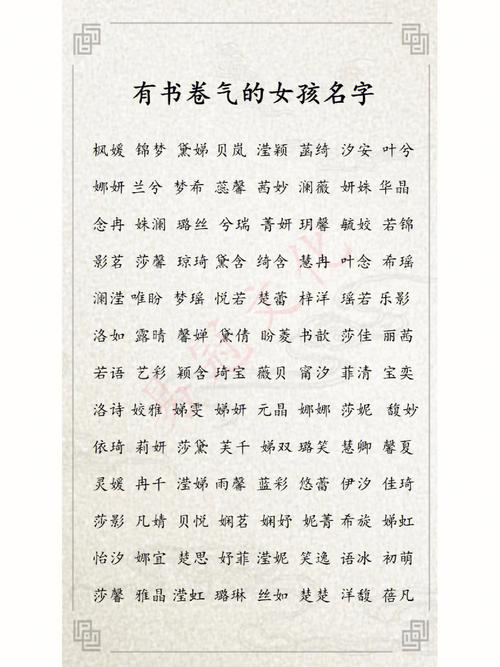 有书卷气的女孩名字
枫媛 锦梦 黛娣 贝岚 滢颖 菡绮 汐安 叶兮
娜妍 兰兮 梦希 蕊馨 茜妙 澜薇 妍姝 华晶
念冉 姝澜 璐丝 兮瑞 菁妍 玥馨 毓姣 若锦
影茗 莎馨 琼琦 黛含 绮含 慧冉 叶念 希瑶
澜滢 唯盼 梦瑶 悦若 楚蕾 梓洋 瑶若 乐影
洛如 露晴 馨婵 黛倩 盼菱 书歆 莎佳 丽茜
若语 艺彩 颖含 琦宝 薇贝 甯汐 菲清 宝奕
洛诗 姣雅 娣雯 娣妍 元晶 娜娜 莎妮 馥妙
依琦 莉妍 莎黛 芙千 娣双 璐笑 慧卿 馨夏
灵媛 冉千 滢娣 雨馨 蓝彩 悠蕾 伊汐 佳琦
莎影 凡婧 贝悦 娴茗 娴妤 妮菁 希旋 娣虹
怡汐 娜宜 楚思 妤菲 滢妮 笑逸 语冰 初萌
莎馨 雅晶 滢虹 璐琳 丝如 楚楚 洋馥 蓓凡